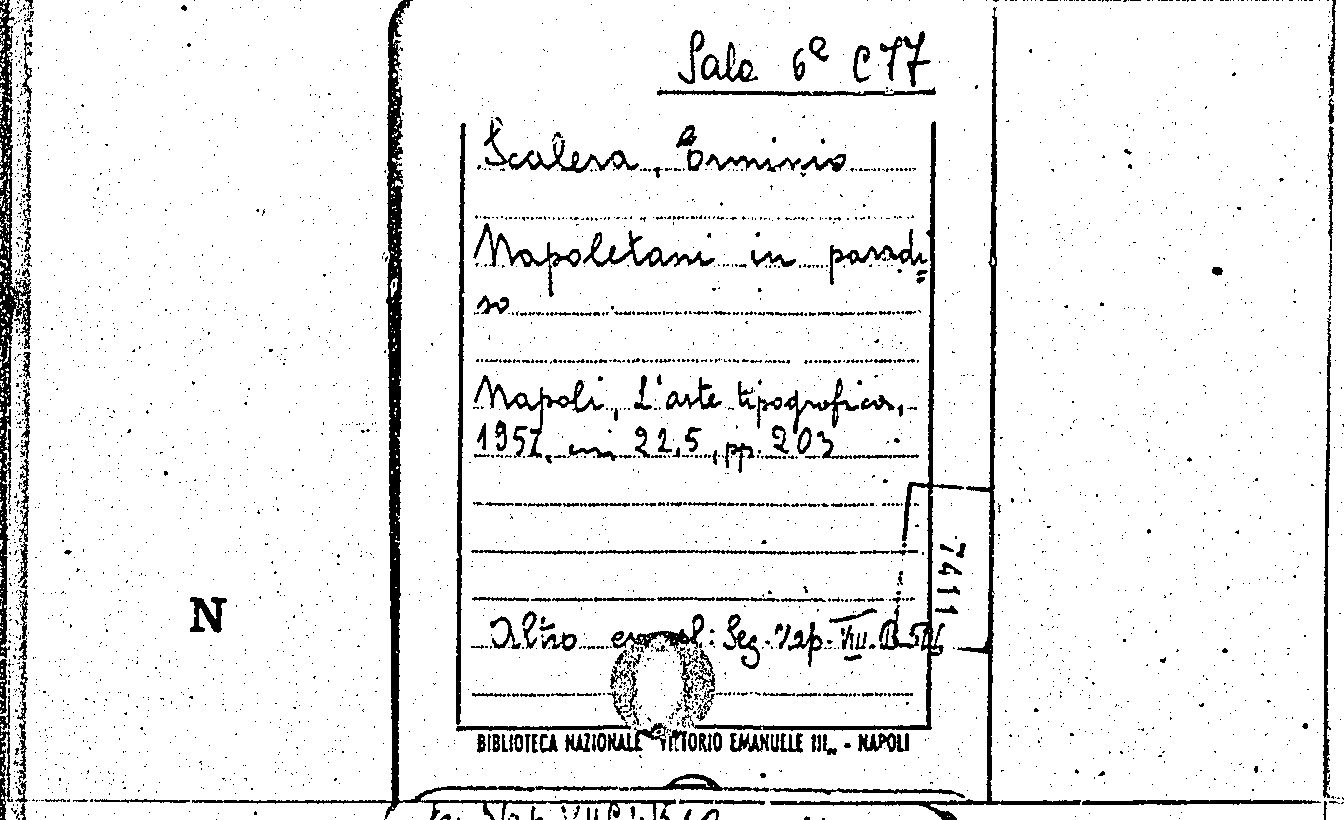 Sala 6ª C 77
Scalera, Erminio
Napoletani in paradi=
so
Napoli, L'arte tipografica,
1957, cm 22,5, pp. 203
7411
N
Altro esempl: Sez. Nap. VIII. B.
BIBLIOTECA NAZIONALE "VITTORIO EMANUELE III„ - NAPOLI